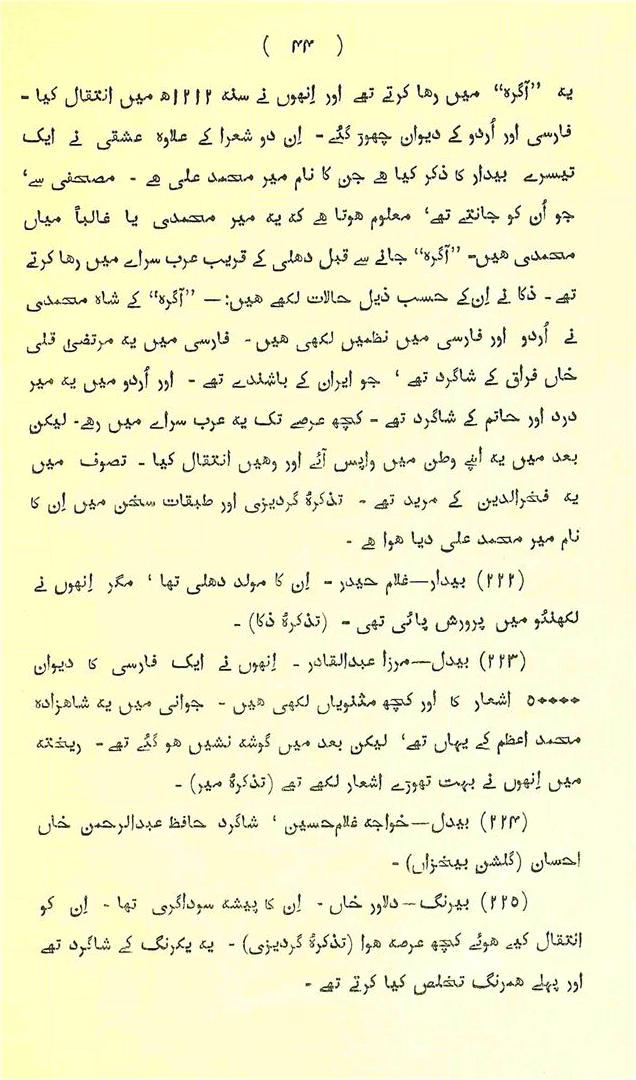 ( ۴۴ )
یہ ”آگرہ“ میں رھا کرتے تھے اور اِنھوں نے سنہ ۱۲۱۲ھ میں انتقال کیا -
فارسی اور اُردو کے دیوان چھوڑ گئے - اِن دو شعرا کے علاوہ عشقی نے ایک
تیسرے بیدار کا ذکر کیا ھے جن کا نام میر محمد علی ھے - مصحفی سے ،
جو اُن کو جانتے تھے ، معلوم ھوتا ھے کہ یہ میر محمدی یا غالباً میاں
محمدی ھیں - ”آگرہ“ جانے سے قبل دھلی کے قریب عرب سراے میں رھا کرتے
تھے - ذکا نے اِن کے حسب ذیل حالات لکھے ھیں :— ”آگرہ“ کے شاہ محمدی
نے اُردو اور فارسی میں نظمیں لکھی ھیں - فارسی میں یہ مرتضیٰ قلی
خاں فراق کے شاگرد تھے ، جو ایران کے باشندے تھے - اور اُردو میں یہ میر
درد اور حاتم کے شاگرد تھے - کچھ عرصے تک یہ عرب سراے میں رھے - لیکن
بعد میں یہ اپنے وطن میں واپس آئے اور وھیں انتقال کیا - تصوف میں
یہ فخرالدین کے مرید تھے - تذکرۂ گردیزی اور طبقات سخن میں اِن کا
نام میر محمد علی دیا ھوا ھے -
(۲۲۲) بیدار—غلام حیدر - اِن کا مولد دھلی تھا ، مگر اِنھوں نے
لکھنئو میں پرورش پائی تھی - (تذکرۂ ذکا) -
(۲۲۳) بیدل—مرزا عبدالقادر - اِنھوں نے ایک فارسی کا دیوان
۵۰۰۰۰ اشعار کا اور کچھ مثنویاں لکھی ھیں - جوانی میں یہ شاھزادہ
محمد اعظم کے یہاں تھے ، لیکن بعد میں گوشہ نشیں ھو گئے تھے - ریختہ
میں اِنھوں نے بہت تھوڑے اشعار لکھے تھے (تذکرۂ میر) -
(۲۲۴) بیدل—خواجہ غلام حسین ، شاگرد حافظ عبدالرحمن خاں
احسان (گلشن بیخزاں) -
(۲۲۵) بیرنگ—دلاور خاں - اِن کا پیشہ سوداگری تھا - اِن کو
انتقال کیے ھوئے کچھ عرصہ ھوا (تذکرۂ گردیزی) - یہ یکرنگ کے شاگرد تھے
اور پہلے ھمرنگ تخلص کیا کرتے تھے -